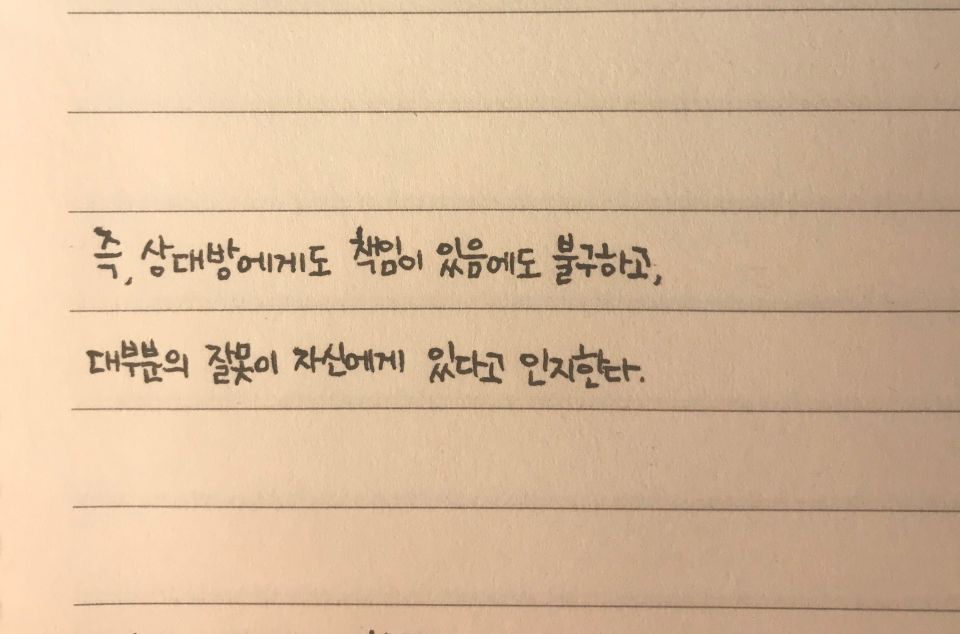 즉, 상대방에게도 책임이 있음에도 불구하고,
대부분의 잘못이 자신에게 있다고 인지한다.